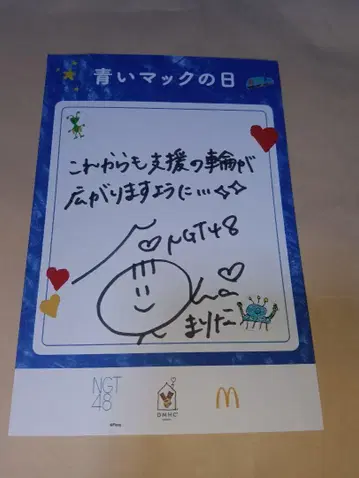 青いマックの日
これからも支援の輪が
広がりますように…
NGT48
まりた
NGT
48
DMHC